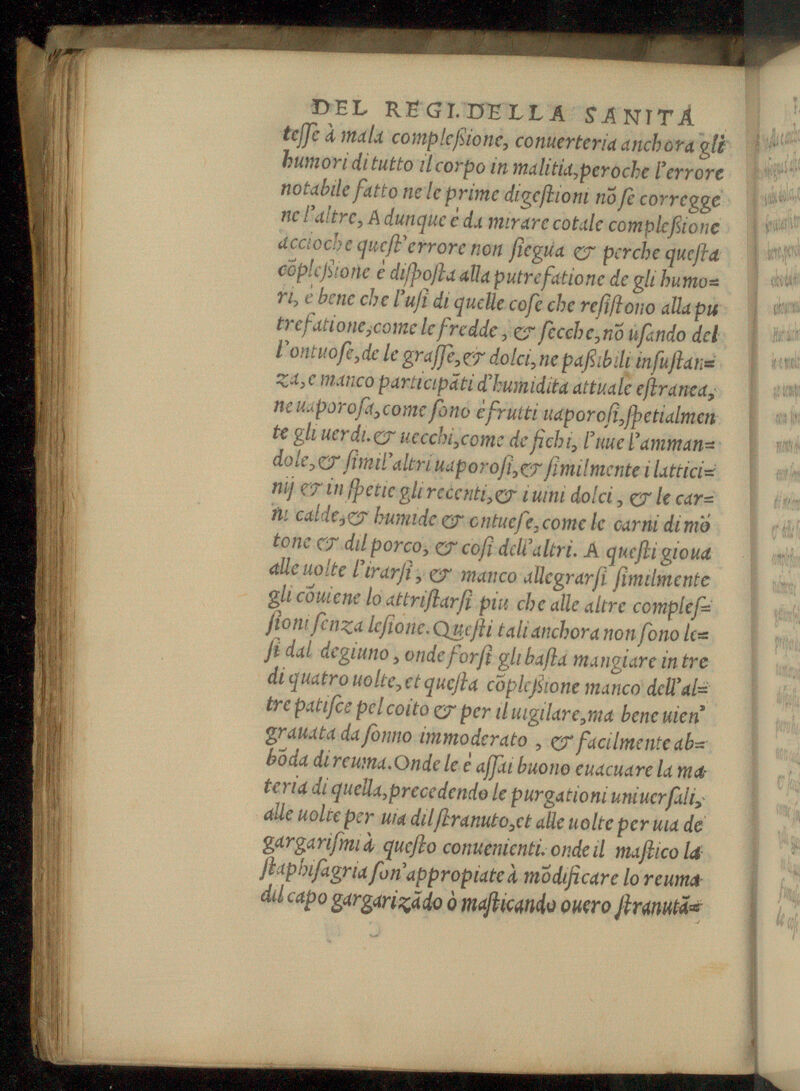 DEL REGI. DELLA SANITÁ
teſſe à mala compleſsione, conuerteria anchora gli
humori di tutto il corpo in malitia, peroche l'errore
notabile fatto ne le prime digeſtioni nõ ſe corregge
ne l'altre, Adunque è da mirare cotale compleſsione
accioche queſt'errore non ſiegua & perche queſta
cõpleſsione è diſpoſta alla putrefatione de gli humo=
ri, è bene che l'uſi di quelle coſe che reſiſtono alla pu
trefatione, come le fredde, & ſecche, nõ uſando del
l'ontuoſe, de le graſſe, & dolci, ne paſsibili in ſuſtan=
za, e manco participãti d'humidita attuale eſtranea,
ne uaporoſa, come ſono e fruiti uaporoſi, ſpetialmen
te gli uerdi. & uecchi, come de fichi, l'uue l'amman=
dole, & ſimil'altri uaporoſi, & ſimilmente i lattici=
nij & in ſpetie gli recenti, & i uini dolci, & le car=
ni calde, & humide & ontueſe, come le carni di mõ
tone & dil porco, & coſi dell'altri. A queſti gioua
alle uolte l'irarſi, & manco allegrarſi ſimilmente
gli cõuiene lo attriſtarſi piu che alle altre compleſ=
ſioni ſenza leſione. Queſti tali anchora non ſono le=
ſi dal degiuno, onde forſi gli baſta mangiare in tre
di quatro uolte, et queſta cõpleſsione manco dell'al=
tre patiſce pel coito & per il uigilare, ma bene uien'
grauata da ſonno immoderato, & facilmente ab=
bõda di reuma. Onde le è aſſai buono euacuare la ma
teria di quella, precedendo le purgationi uniuerſali,
alle uolte per uia dil ſtranuto, et alle uolte per uia de
gargariſmi à queſto conuenienti. onde il maſtico la
ſtaphiſagria ſon'appropiate à mõdificare lo reuma
dil capo gargarizãdo ò maſticando ouero ſtranutã=